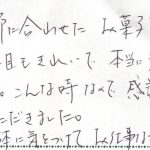 節に合わせた お菓子
見目もきれいで 本当に
。こんな時なので 感謝
ただきました。
に気をつけて お仕事